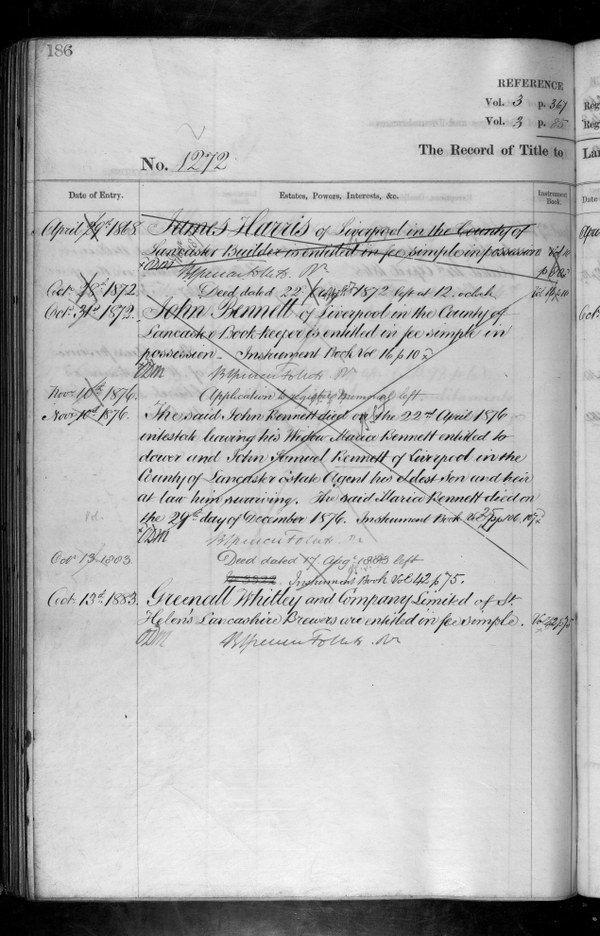 186
REFERENCE
Vol. 3 p. 367
Vol. 3 p.
The Record of Title to
No. 1272
Date of Entry.
Estates, Powers, Interests, &c.
Instrument Book.
April 29th 1868
James Harris of Liverpool in the County of
Lancaster Builder is entitled in fee simple in possession Vol 10
ODM
Oct. 1872.
Deed dated 22 1872 left at 12. o'clock Vol 16 p 10
Oct. 31st 1872.
John Bennett of Liverpool in the County of
Lancaster Book-keeper is entitled in fee simple in
possession - Instrument Book Vol 16 p 10
ODM
Novr 10th 1876.
Application to register memorial left.
Novr 10th 1876.
The said John Bennett died on the 22nd April 1876
intestate leaving his Widow Maria Bennett entitled to
dower and John Samuel Bennett of Liverpool in the
County of Lancaster Estate Agent his eldest Son and heir
at law him surviving. The said Maria Bennett died on
the 29th day of December 1876. Instrument Book Vol
ODM
Oct 13 1883
Deed dated 17 Augt 1883 left
Instrument Book Vol 42 p 75.
Oct. 13th 1883.
Greenall Whitley and Company Limited of St.
Helens Lancashire Brewers are entitled in fee simple. Vol 42 p 75
ODM